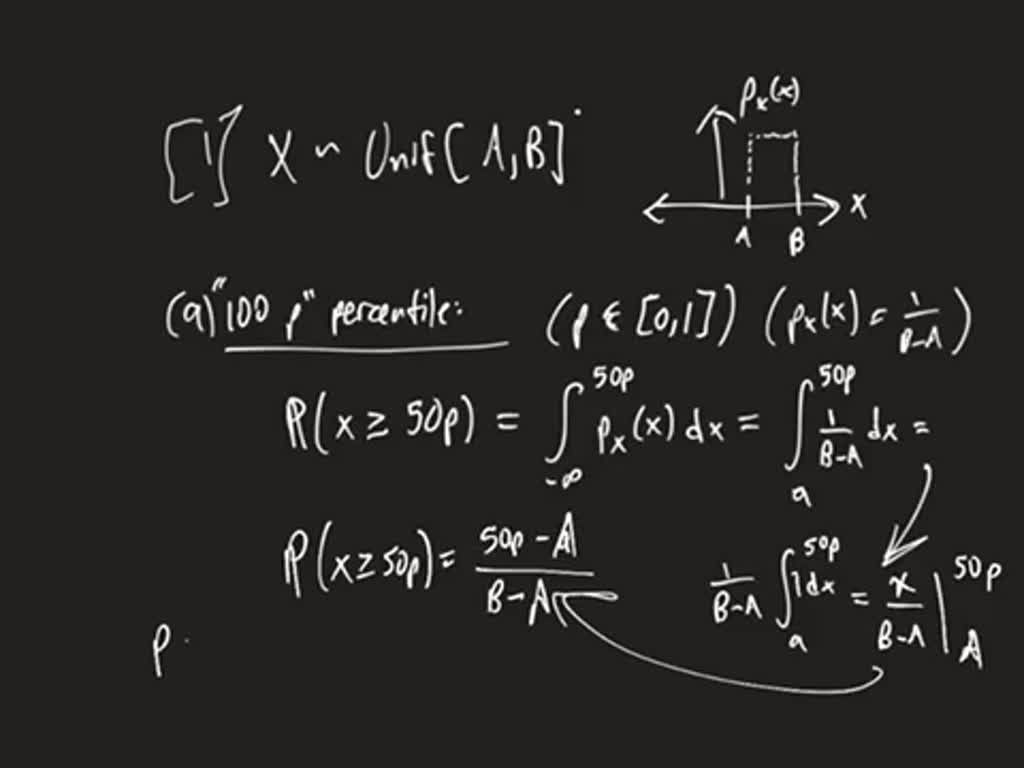 [1] X ~ Unif[A,B]
p_x(x)
x
A B
(a) "100 p" percentile: (p ∈ [0,1]) (p_x(x) = 1/(B-A))
P(x ≥ 50p) = ∫_{-∞}^{50p} p_x(x) dx = ∫_a^{50p} 1/(B-A) dx =
P(x ≥ 50p) = (50p - A)/(B-A)
1/(B-A) ∫_a^{50p} 1 dx = x/(B-A) |_A^{50p}
p